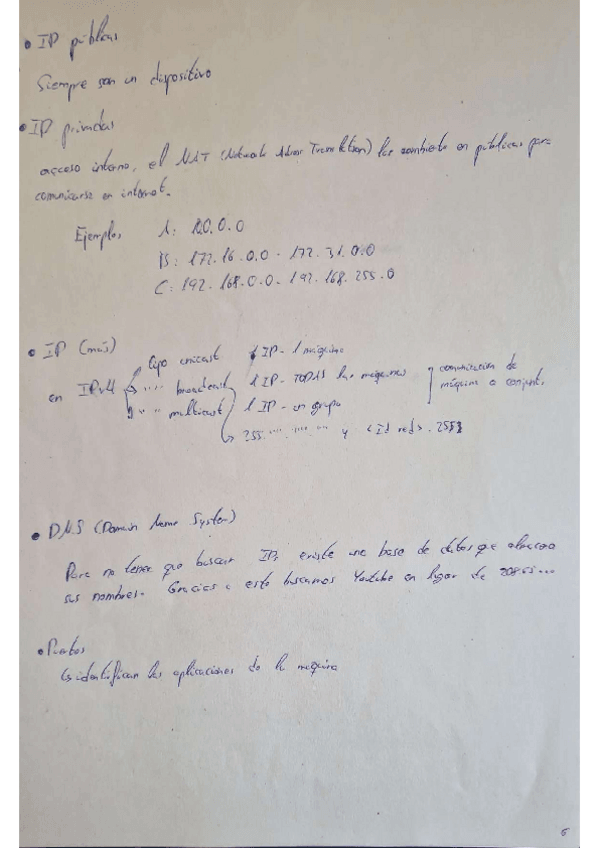 • IP públicas
Siempre son un dispositivo
• IP privadas
acceso interno, el NAT (Network Adress Translation) las cambiaba en públicas para
comunicarse en internet.
Ejemplos A: 10.0.0.0
B: 172.16.0.0 - 172.31.0.0
C: 192.168.0.0 - 192.168.255.0
• IP (más)
en IPv4
tipo unicast 1 IP - 1 máquina
" " broadcast 1 IP - TODAS las máquinas
" " multicast 1 IP - un grupo
comunicación de
máquina a conjunt.
255. y <Id red>.255
• DNS (Domain Name System)
Para no tener que buscar IPs existe una base de datos que almacena
sus nombres. Gracias a esto buscamos Youtube en lugar de 208.65...
• Puertos
Identifican las aplicaciones de la máquina
6